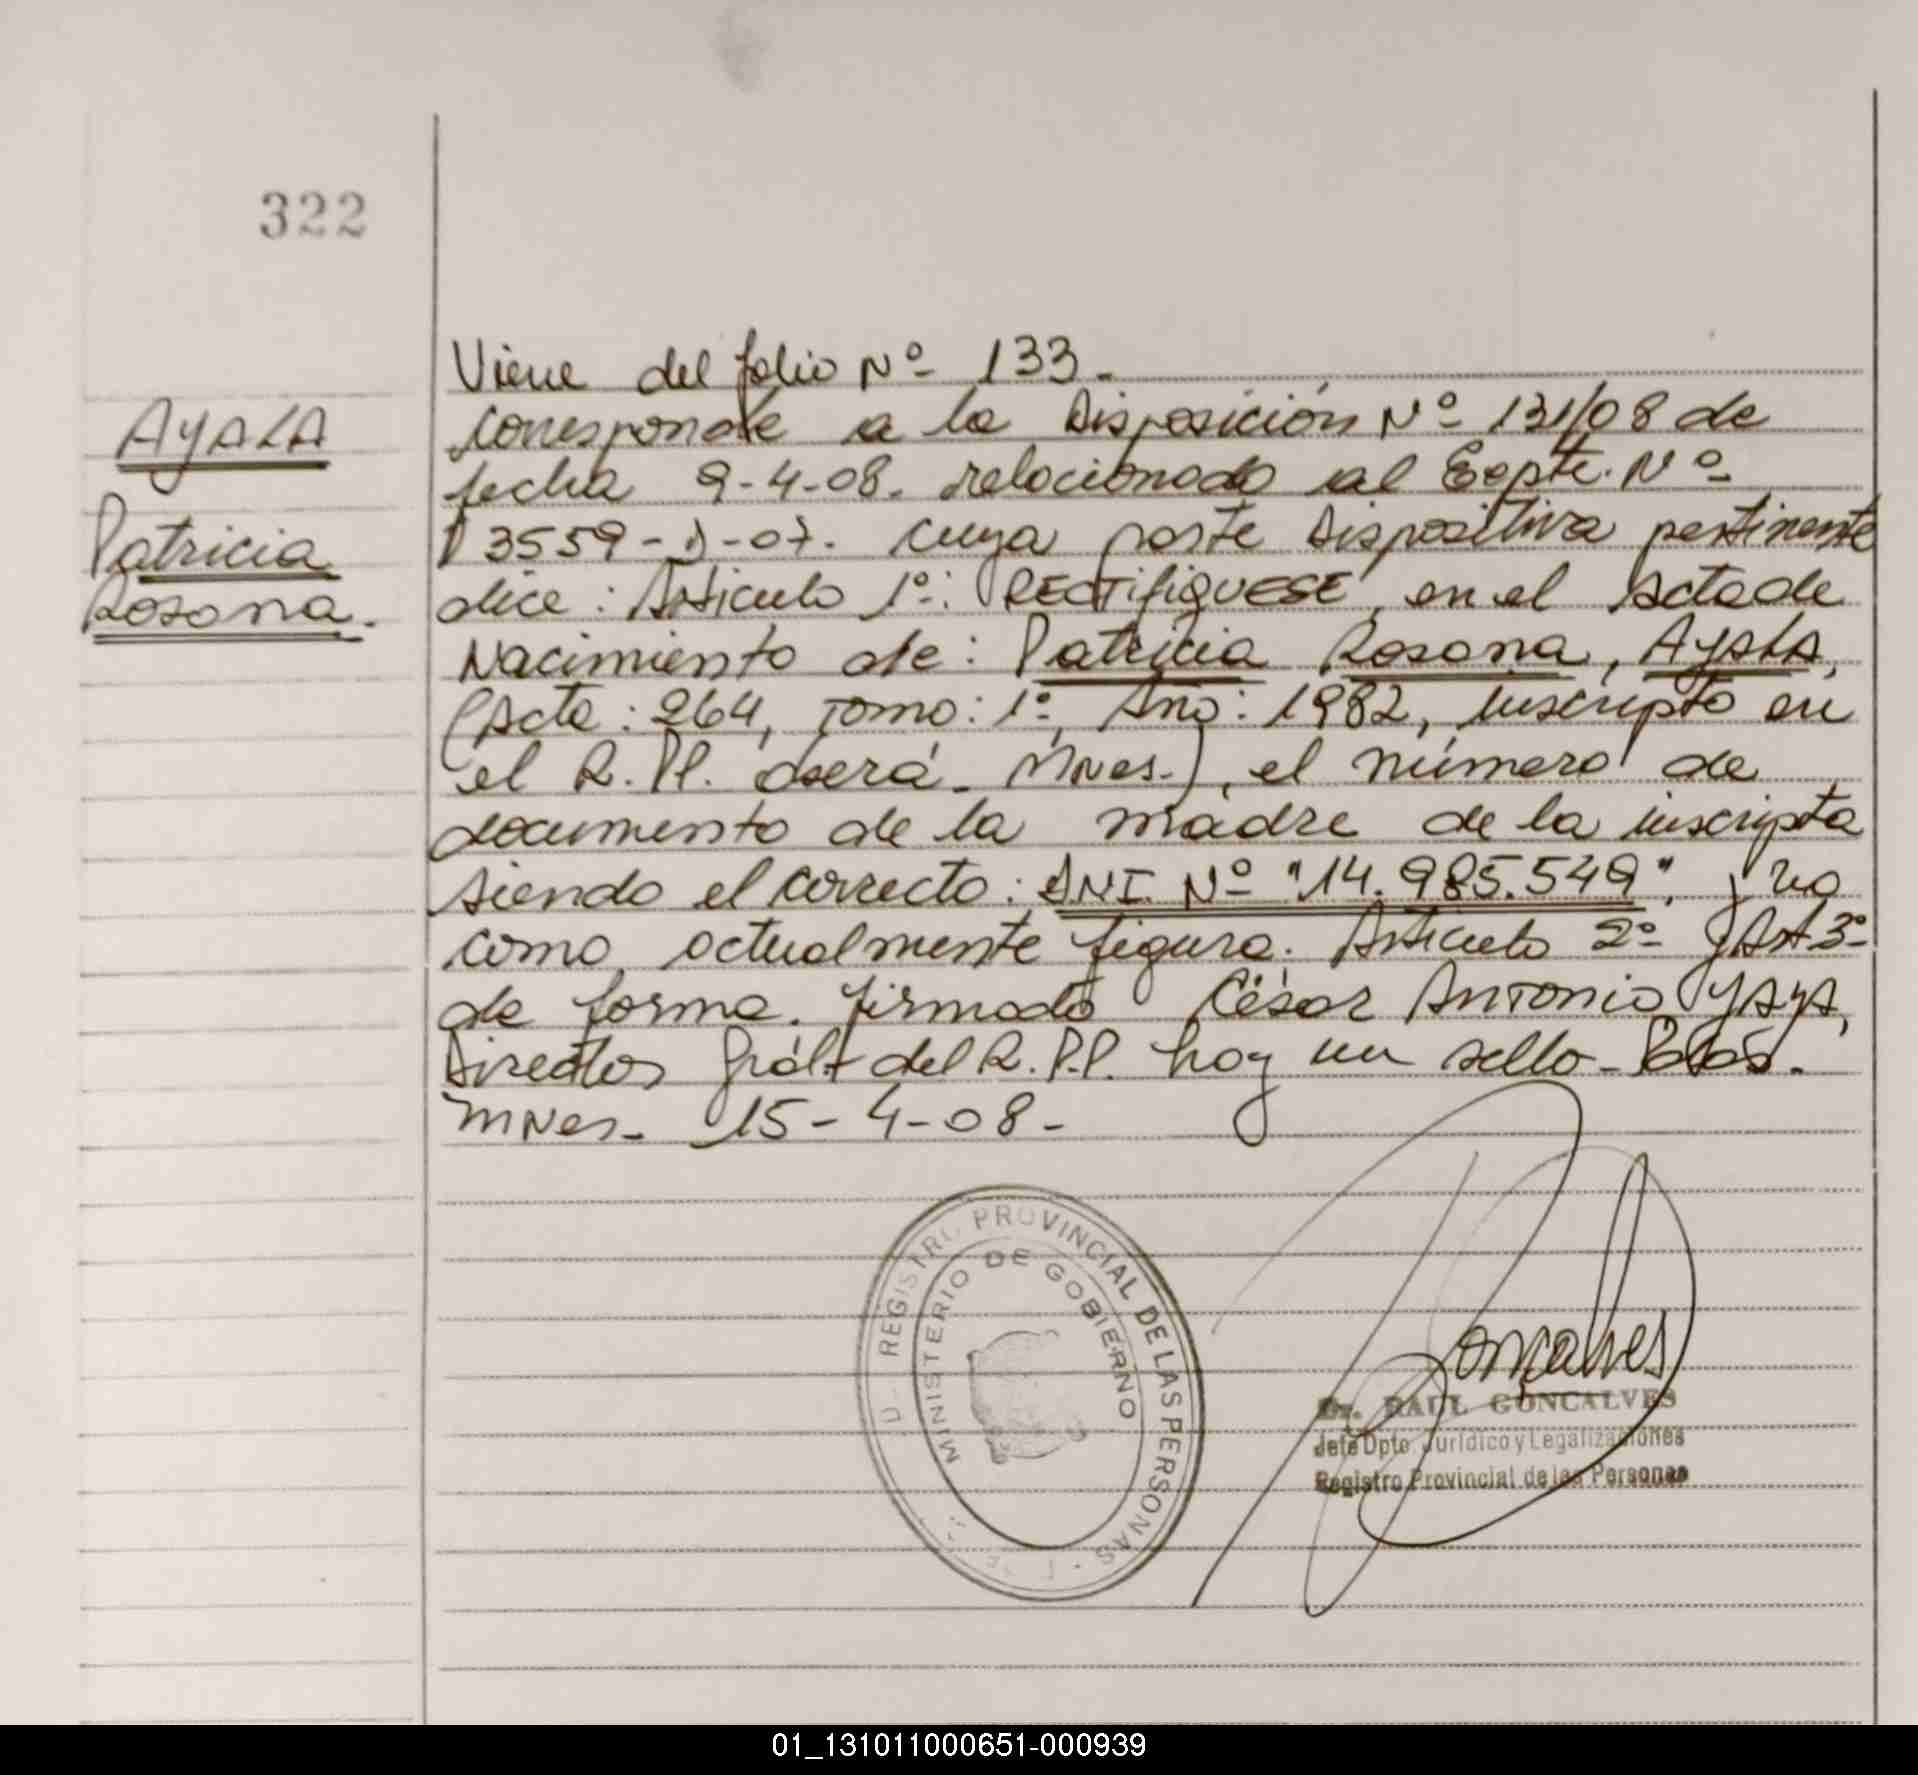 322
AYALA
Patricia
Rosana.
Viene del folio Nº 133.
Corresponde a la Disposición Nº 131/08 de
fecha 9-4-08. relacionado al Expte. Nº
3559-D-07. cuya parte Dispositiva pertinente
dice: Artículo 1º: RECTIFIQUESE, en el Acta de
Nacimiento de: Patricia Rosana, AYALA,
(Acta: 264, Tomo: 1º, Año: 1982, inscripto en
el R.PP. Oberá. Mnes.), el número de
documento de la madre de la inscripta
siendo el correcto: DNI. Nº "14.985.549", y no
como actualmente figura. Artículo 2º y Art 3º
de forma. firmado César Antonio YAYA,
Director Gral. del R.P.P. hay un sello- Pdas.
Mnes. 15-4-08-
REGISTRO PROVINCIAL DE LAS PERSONAS
MINISTERIO DE GOBIERNO
Goncalves
Dr. RAUL GONCALVES
Jefe Dpto. Jurídico y Legalizaciones
Registro Provincial de las Personas
01_131011000651-000939